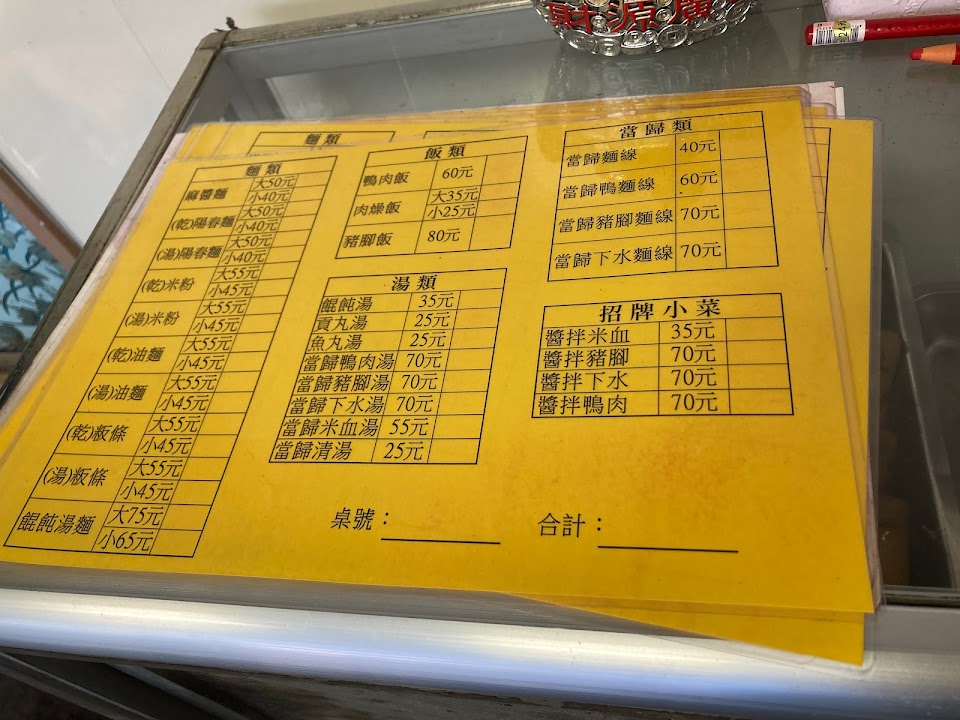 財源廣
麵類
麵類
麻醬麵 大50元 小40元
(乾)陽春麵 大50元 小40元
(湯)陽春麵 大50元 小40元
(乾)米粉 大55元 小45元
(湯)米粉 大55元 小45元
(乾)油麵 大55元 小45元
(湯)油麵 大55元 小45元
(乾)粄條 大55元 小45元
(湯)粄條 大55元 小45元
餛飩湯麵 大75元 小65元
飯類
鴨肉飯 60元
肉燥飯 大35元 小25元
豬腳飯 80元
湯類
餛飩湯 35元
貢丸湯 25元
魚丸湯 25元
當歸鴨肉湯 70元
當歸豬腳湯 70元
當歸下水湯 70元
當歸米血湯 55元
當歸清湯 25元
當歸類
當歸麵線 40元
當歸鴨麵線 60元
當歸豬腳麵線 70元
當歸下水麵線 70元
招牌小菜
醬拌米血 35元
醬拌豬腳 70元
醬拌下水 70元
醬拌鴨肉 70元
桌號：
合計：